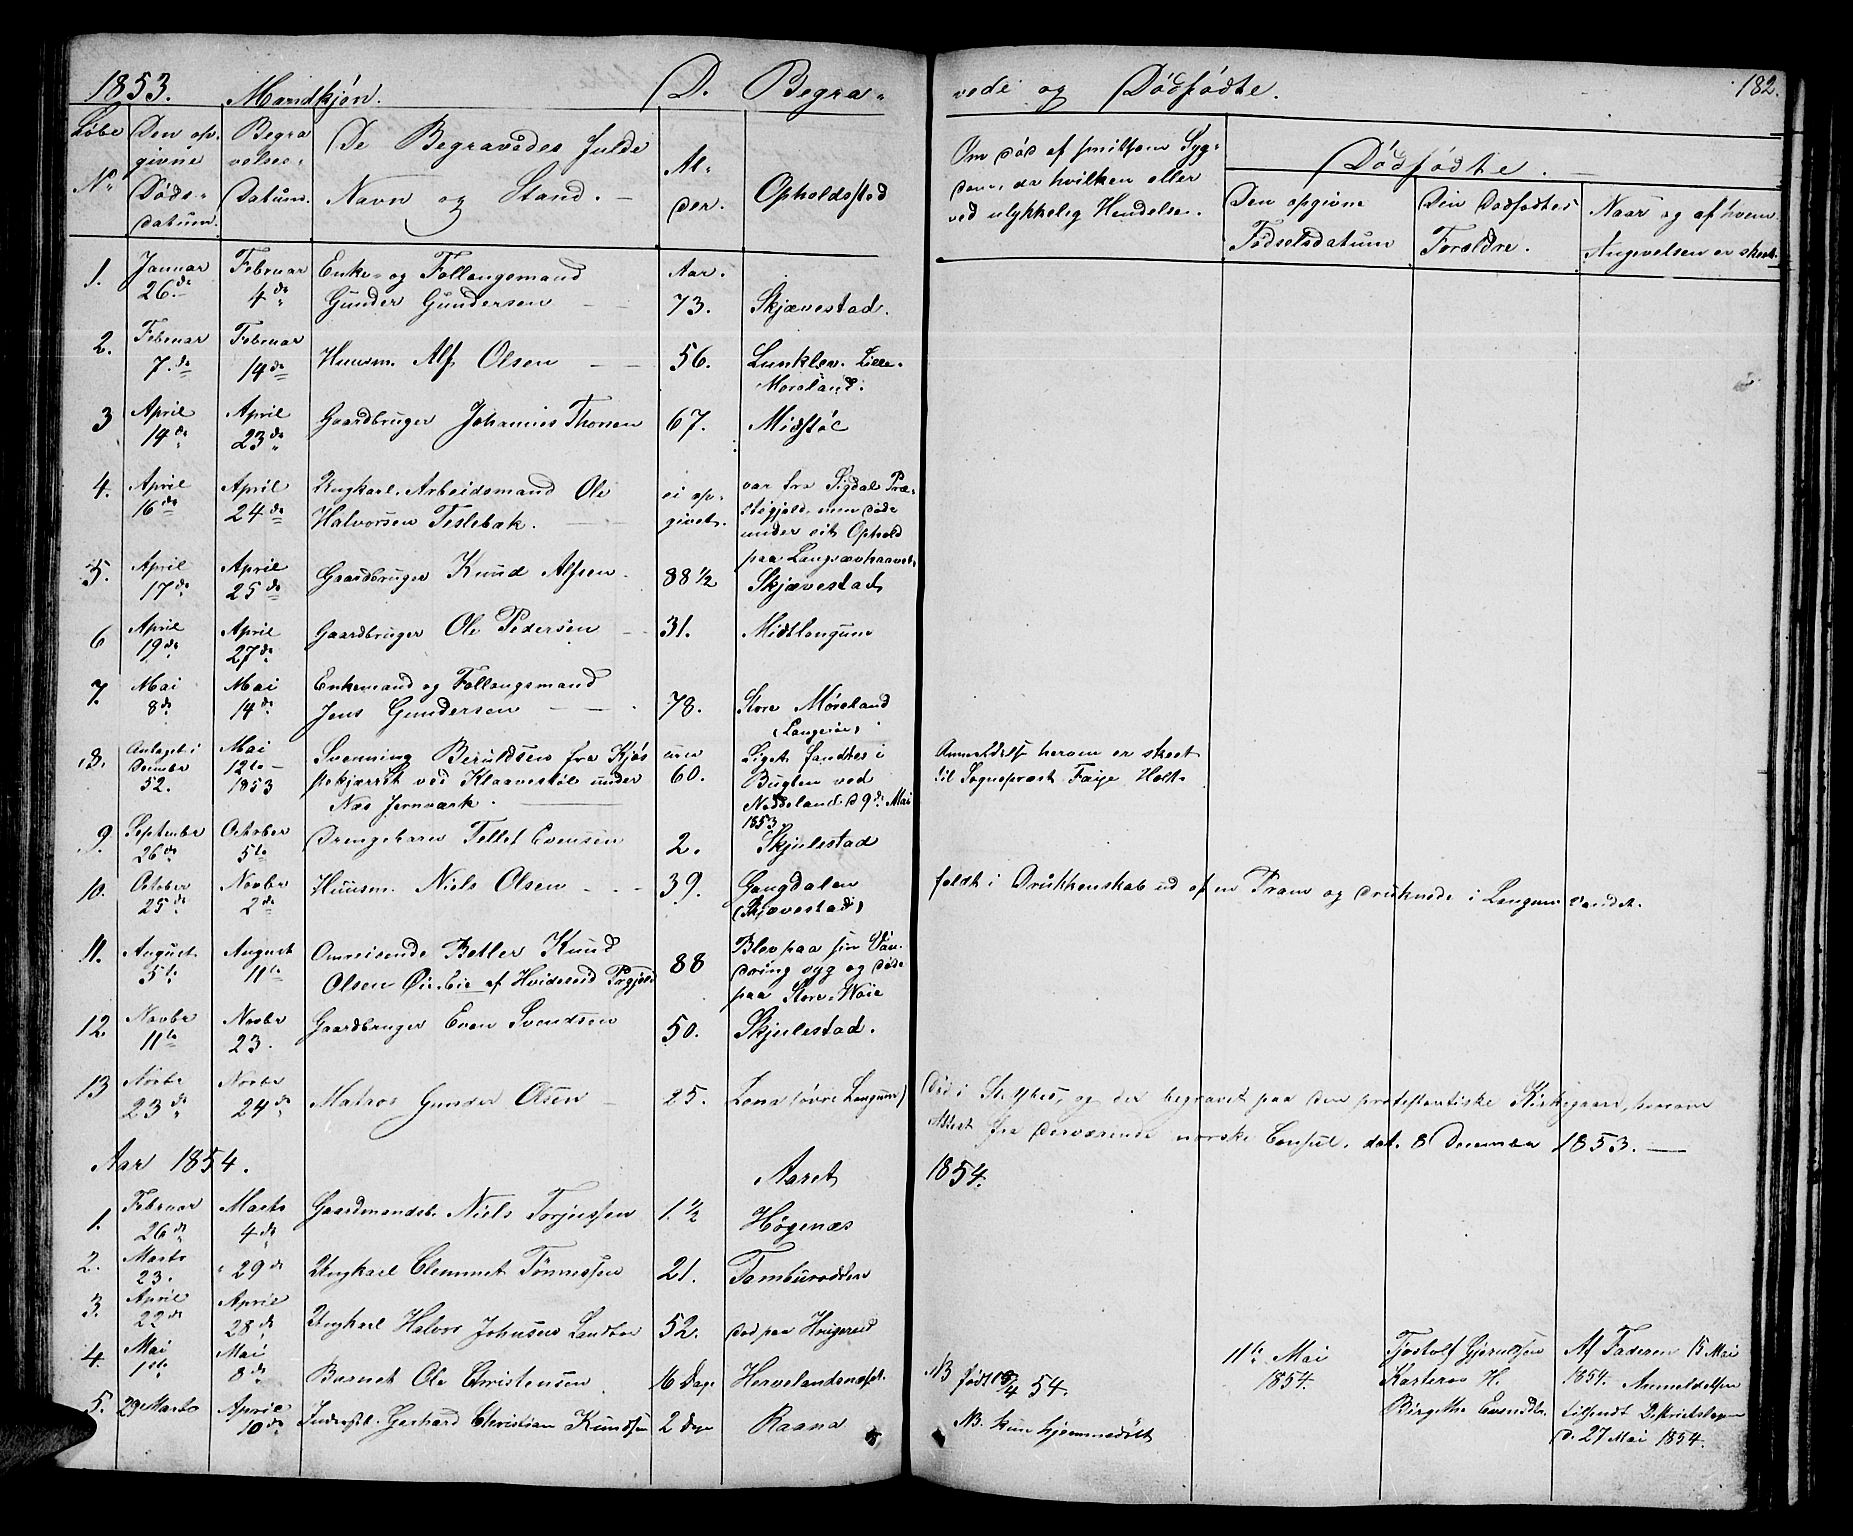 1853. Mandkjøn. D. Begra-
vede og Dødfødte. 182.
Løbe No
Den opgivne Dødsdatum.
Begravelses-Datum.
De Begravedes fulde Navn og Stand.
Alder.
Opholdssted
Om død af smitsom Sygdom, da hvilken eller ved ulykkelig Hendelse.
Dødfødte.
Den opgivne Fødselsdatum
Den Dødfødtes Forældre.
Naar og af hvem Angivelsen er skeet.
1. Januar 26de Februar 4de Enke- og Follaugsmand Gunder Gundersen Aar. 73. Skjævestad.
2. Februar 7de Februar 14de Huusm. Alf Olsen 56. Lunklev. Lille-Moreland.
3 April 14de April 23de Gaardbruger Johannes Thorsen 67. Midstøl
4. April 16de April 24de Ungkarl. Arbeidsmand Ole Halvorsen Teslebak. ei opgivet. var fra Sigdal Præstegjeld, men døde under sit Ophold paa
5. April 17de April 25de Gaardbruger Knud Alfsen. 88 1/2 Skjævestad
6 April 19de April 27de Gaardbruger Ole Pedersen 31. Midtlangum
7. Mai 8de Mai 14de Enkemand og Follaugsmand Jens Gundersen 78. Store Møreland
8. Antaget i December 52. Mai 12te 1853 Svenning Beruldsen fra ved Klaavestøl under Næs Jernværk. 60. Liget fandtes i Bugten ved d 9de Mai 1853. Anmeldelse herom er skeet til Sognepræst Faye Holt.
9. September 26de October 5te Drengebarn Tellef Evensen 2. Skjulestad
10. October 25de Novbr 2de Huusm. Niels Olsen 39. Gangdalen (Skjævestad) faldt i Drukkenskab ud af en Pram og druknede i Langum Vandet.
11. August 5te August 11te Omreisende Betler Knud Olsen af Hvideseid Pgjeld 88 Blev paa sin Vandring syg og døde paa Store
12 Novbr 11te Novbr 23. Gaardbruger Even Svendsen 50. Skjulestad.
13 Novbr 23de Novbr 24de Matros Gunder Olsen 25. Lona (øvre Langum) Død i og der begravet paa den protestantiske Kirkegaard, herom Attest fra derværende norske Consul, dat. 8 December 1853.
Aar 1854. Aaret 1854.
1. Februar 26de Marts 4de Gaardmandsb. Niels Torjussen 1. 1/2 Høgenæs
2. Marts 23. " 29de Ungkarl Clemmet Tønnessen 21. Tamburodden
3. April 22de April 28de Ungkarl Halvor Johnsen Landbo 52. død paa
4. Mai 1ste Mai 8de Barnet Ole Christensen 16 Dage NB født 15/4 54. 11te Mai 1854. Tjøstolf Gjeruldsen H. Birgithe Evensdtr. Af Faderen 15 Mai 1854. Anmeldelsen tilsendt Districtslægen d. 27 Mai 1854.
5. 29 Marts April 10de Inderstb. Gerhard Christian Knudsen 2 Dage Raana NB. kun hjemmedøbt